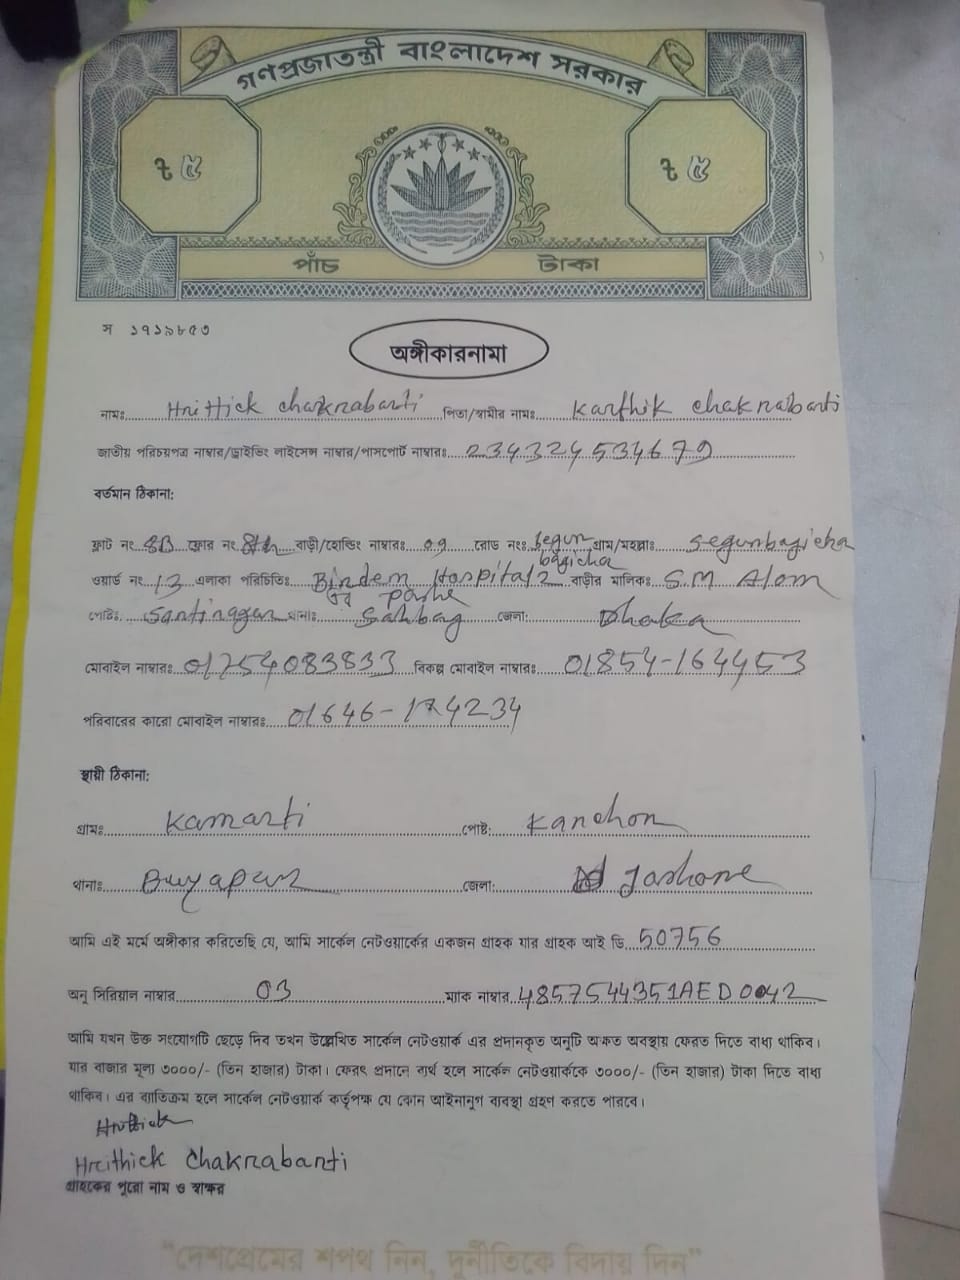 গণপ্রজাতন্ত্রী বাংলাদেশ সরকার
৳ ৫ ৳ ৫
পাঁচ টাকা
স ১৭১৯৮৫৩
অঙ্গীকারনামা
নামঃ Hrittick chakrabanti পিতা/স্বামীর নামঃ Karthik chakrabanti
জাতীয় পরিচয়পত্র নাম্বার/ড্রাইভিং লাইসেন্স নাম্বার/পাসপোর্ট নাম্বারঃ 234324534679
বর্তমান ঠিকানা:
ফ্লাট নং 8B ফ্লোর নং 8th বাড়ী/হোল্ডিং নাম্বারঃ 09 রোড নংঃ Segun bagicha গ্রাম/মহল্লাঃ Segunbagicha
ওয়ার্ড নং 13 এলাকা পরিচিতিঃ Birdem Hospital 2 এর pashe বাড়ীর মালিকঃ S.M Alom
পোষ্টঃ Santinagar থানাঃ Sahbag জেলা: Dhaka
মোবাইল নাম্বারঃ 01754083833 বিকল্প মোবাইল নাম্বারঃ 01854-164453
পরিবারের কারো মোবাইল নাম্বারঃ 01646-174234
স্থায়ী ঠিকানা:
গ্রামঃ Kamarti পোষ্ট: Kanchon
থানাঃ জেলা: Jashore
আমি এই মর্মে অঙ্গীকার করিতেছি যে, আমি সার্কেল নেটওয়ার্কের একজন গ্রাহক যার গ্রাহক আই ডি 50756
অনু সিরিয়াল নাম্বার 03 ম্যাক নাম্বার 4857544351AED0042
আমি যখন উক্ত সংযোগটি ছেড়ে দিব তখন উল্লেখিত সার্কেল নেটওয়ার্ক এর প্রদানকৃত অনুটি অক্ষত অবস্থায় ফেরত দিতে বাধ্য থাকিব।
যার বাজার মূল্য ৩০০০/- (তিন হাজার) টাকা। ফেরৎ প্রদানে ব্যর্থ হলে সার্কেল নেটওয়ার্ককে ৩০০০/- (তিন হাজার) টাকা দিতে বাধ্য
থাকিব। এর ব্যতিক্রম হলে সার্কেল নেটওয়ার্ক কর্তৃপক্ষ যে কোন আইনানুগ ব্যবস্থা গ্রহণ করতে পারবে।
Hrithick
Hrithick Chakrabanti
গ্রাহকের পুরো নাম ও স্বাক্ষর
"দেশপ্রেমের শপথ নিন, দুর্নীতিকে বিদায় দিন"